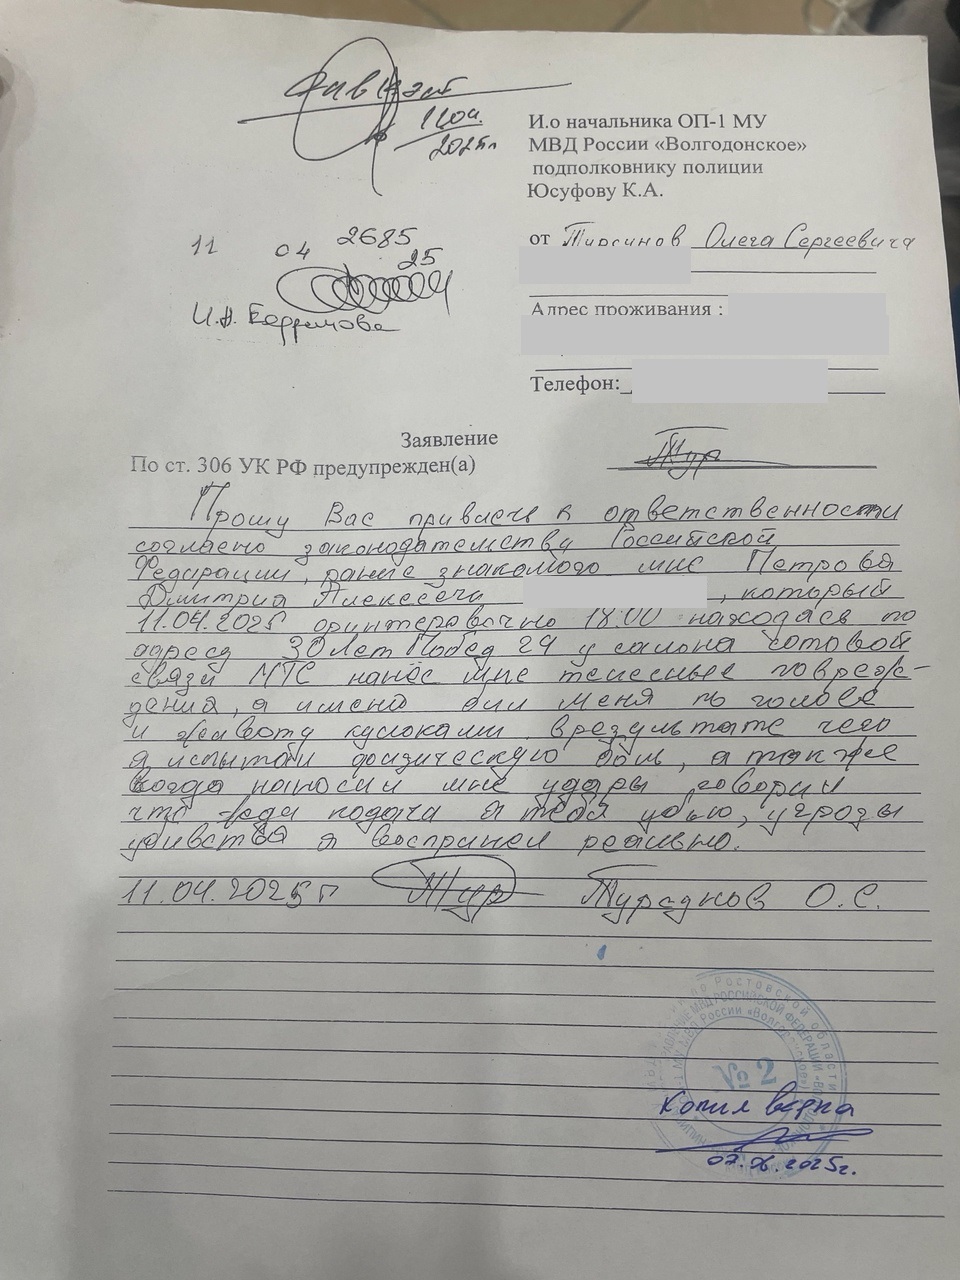 11 04
2025г.
И.о начальника ОП-1 МУ
МВД России «Волгодонское»
подполковнику полиции
Юсуфову К.А.
11 04 2685
25
от Олега Сергеевича
Адрес проживания :
Телефон:
Заявление
По ст. 306 УК РФ предупрежден(а)
Прошу Вас привлечь к ответственности
согласно законодательству Российской
Федарации, ранее знакомого мне Петрова
Дмитрия , который
11.04.2025 18:00 находясь по
адресу 30 лет Побед 24 у салона сотовой
связи МТС нанёс мне телесные повреж-
дения, а имено бил меня по голове
и животу кулоками врезультате чего
я испытал физическую боль, а так же
когда наносил мне удары говорил
что подача я тебя убью, угрозы
убивства я воспринел реально.
11.04.2025 г О.С.
Ростовской области
МВД РОССИЙСКОЙ ФЕДЕРАЦИИ
МВД России
№ 2
Копия верна
07.06.2025г.